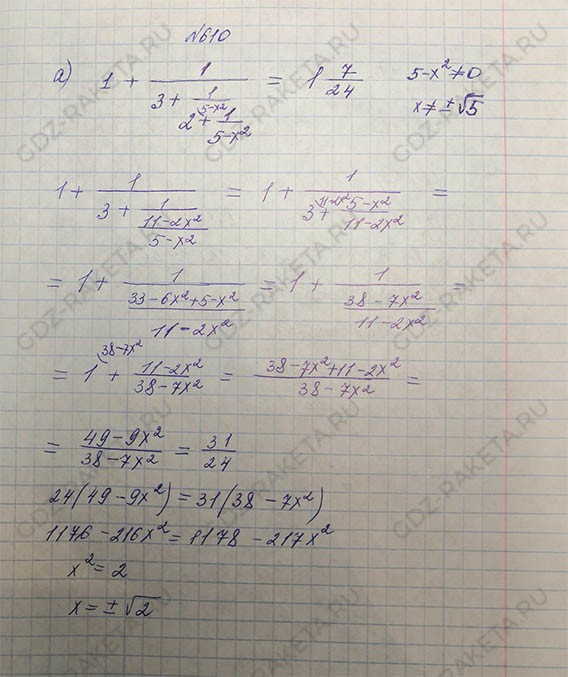 №610
а) 1 + 1/(3 + 1/(2 + 1/(5-x²))) = 1 7/24    5-x² ≠ 0
x ≠ ±√5
1 + 1/(3 + 1/((11-2x²)/(5-x²))) = 1 + 1/(3 + (5-x²)/(11-2x²)) =
= 1 + 1/((33-6x²+5-x²)/(11-2x²)) = 1 + 1/((38-7x²)/(11-2x²)) =
= 1 + (11-2x²)/(38-7x²) = (38-7x²+11-2x²)/(38-7x²) =
= (49-9x²)/(38-7x²) = 31/24
24(49-9x²) = 31(38-7x²)
1176-216x² = 1178-217x²
x² = 2
x = ±√2
GDZ-RAKETA.RU